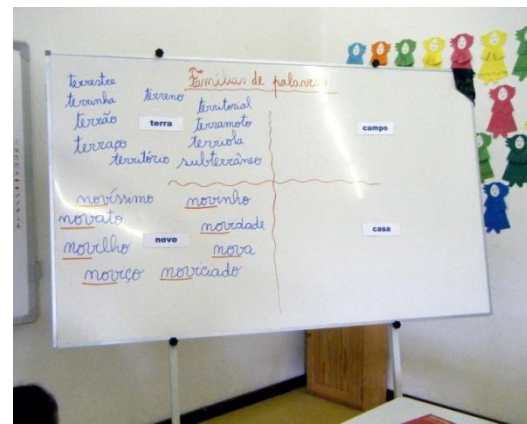 Famílias de palavras
terrestre
terrinha terreno territorial
terrão terra terramoto
terraço terriola
território subterrâneo
campo
novíssimo novinho
novato novidade
novelho novo nova
noviço noviciado
casa